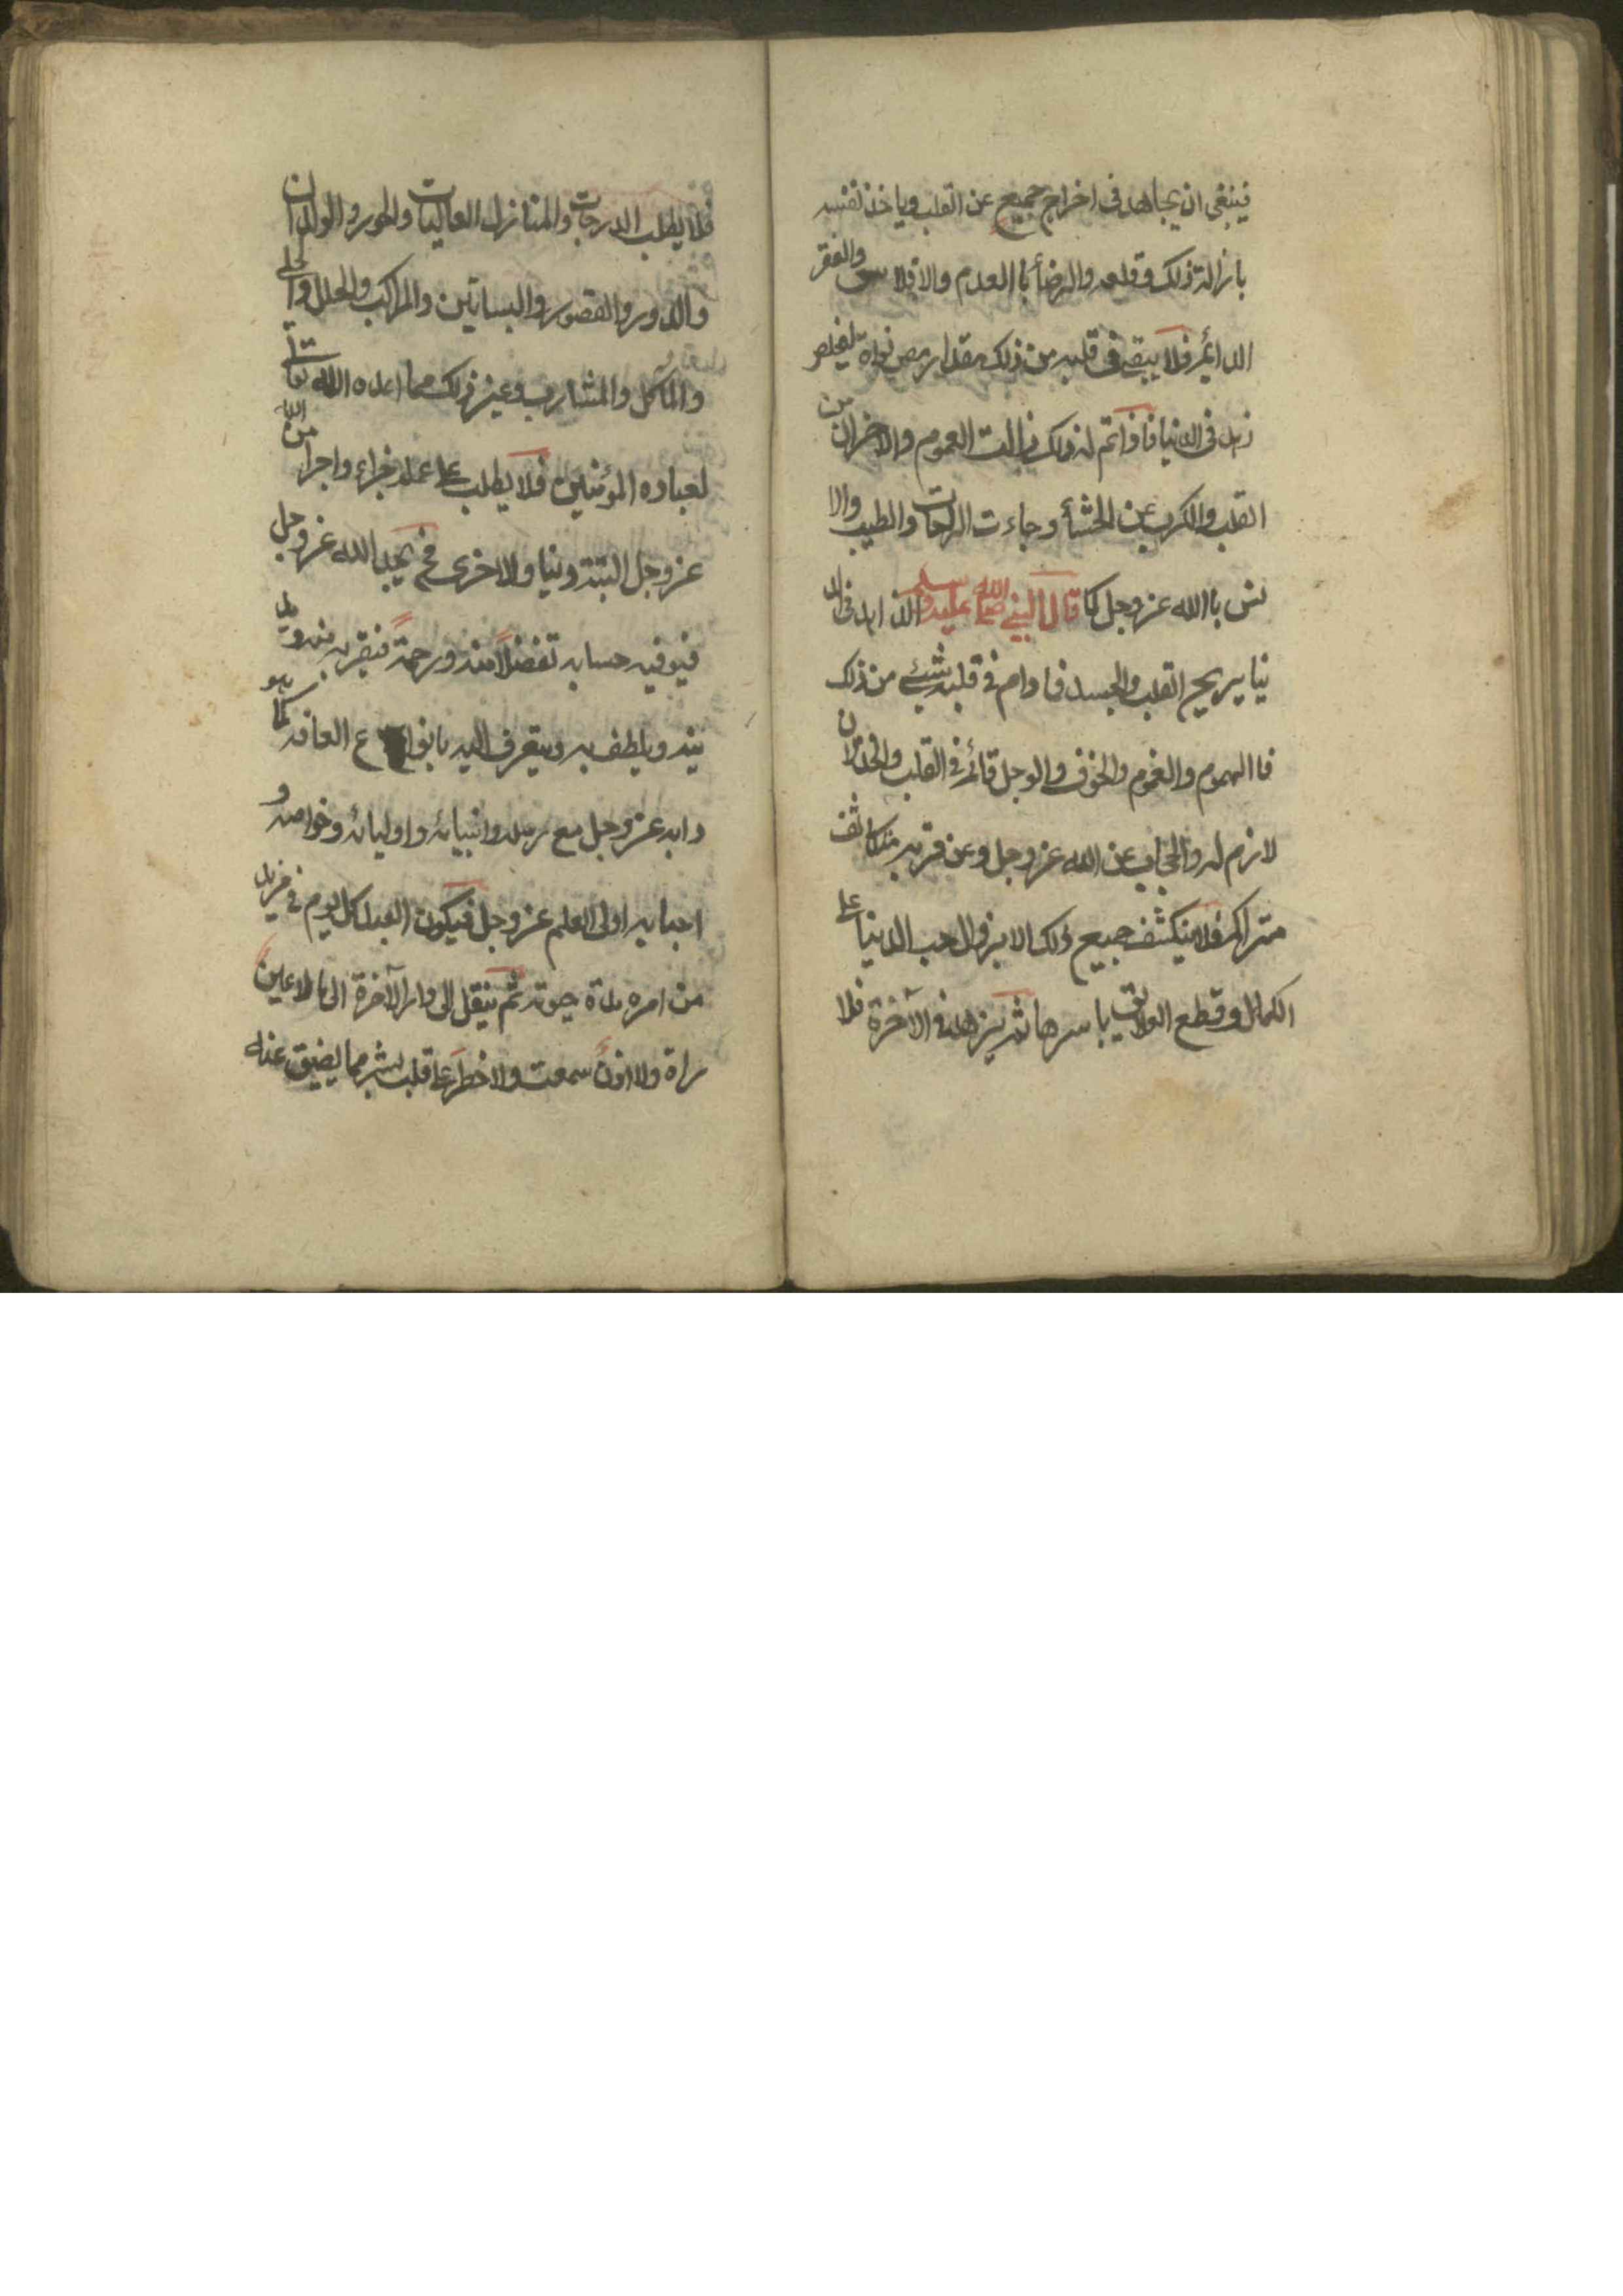 فينبغي ان يجاهد في اخراج جميع عن القلب وياخذ نفسه
بازالة ذلك وقلعه والرضأ باالعدم والافلاس والفقر
الدائم فلا يبقى في قلبه من ذلك مقدار مص نواة ليخلص
زهده في الدنيا فاذا تم له ذلك زالت الغموم والاحزان من
القلب والكرب عن الحشأ وجاءت الراحات والطيب والا
نس باالله عز وجل كما قال النبي صلى الله عليه وسلم الزهد في الد
نيا يريح القلب والجسد فما دام في قلبه شيئ من ذلك
فاالهموم والغموم والخوف والوجل قائم في القلب والخذلان
لازم له والحجاب عن الله عز وجل وعن قربه متكاثف
متراكم فلا ينكشف جميع ذلك الا بزوال حب الدنيا على
الكمال وقطع العلائق باسرها ثم يزهد في الآخرة فلا
فلا يطلب الدرجات والمنازل العاليات والحور والولدان
والدور والقصور والبساتين والمراكب والحلل والحلى
والمآكل والمشارب وغير ذلك مما اعده الله تعالى
لعباده المؤمنين فلا يطلب على عمله جزاء واجرا من الله
عز وجل البتة دنيا ولا اخرى فح يجد الله عز وجل
فيوفيه حسابه تفضلاً منه ورحمة فيقربه منه ويد
نيه ويلطف به ويتعرف اليه بانواع الطافه كما هو
دابه عز وجل مع رسله وانبيائه واوليائه وخواصه و
احبابه اولى العلم عز وجل فيكون العبد كل يوم في مزيد
من امره مدة حيوته ثم ينقل الى دار الآخرة الى مالا عين
راة ولا اذن سمعت ولا خطر على قلب بشر مما يضيق عنه